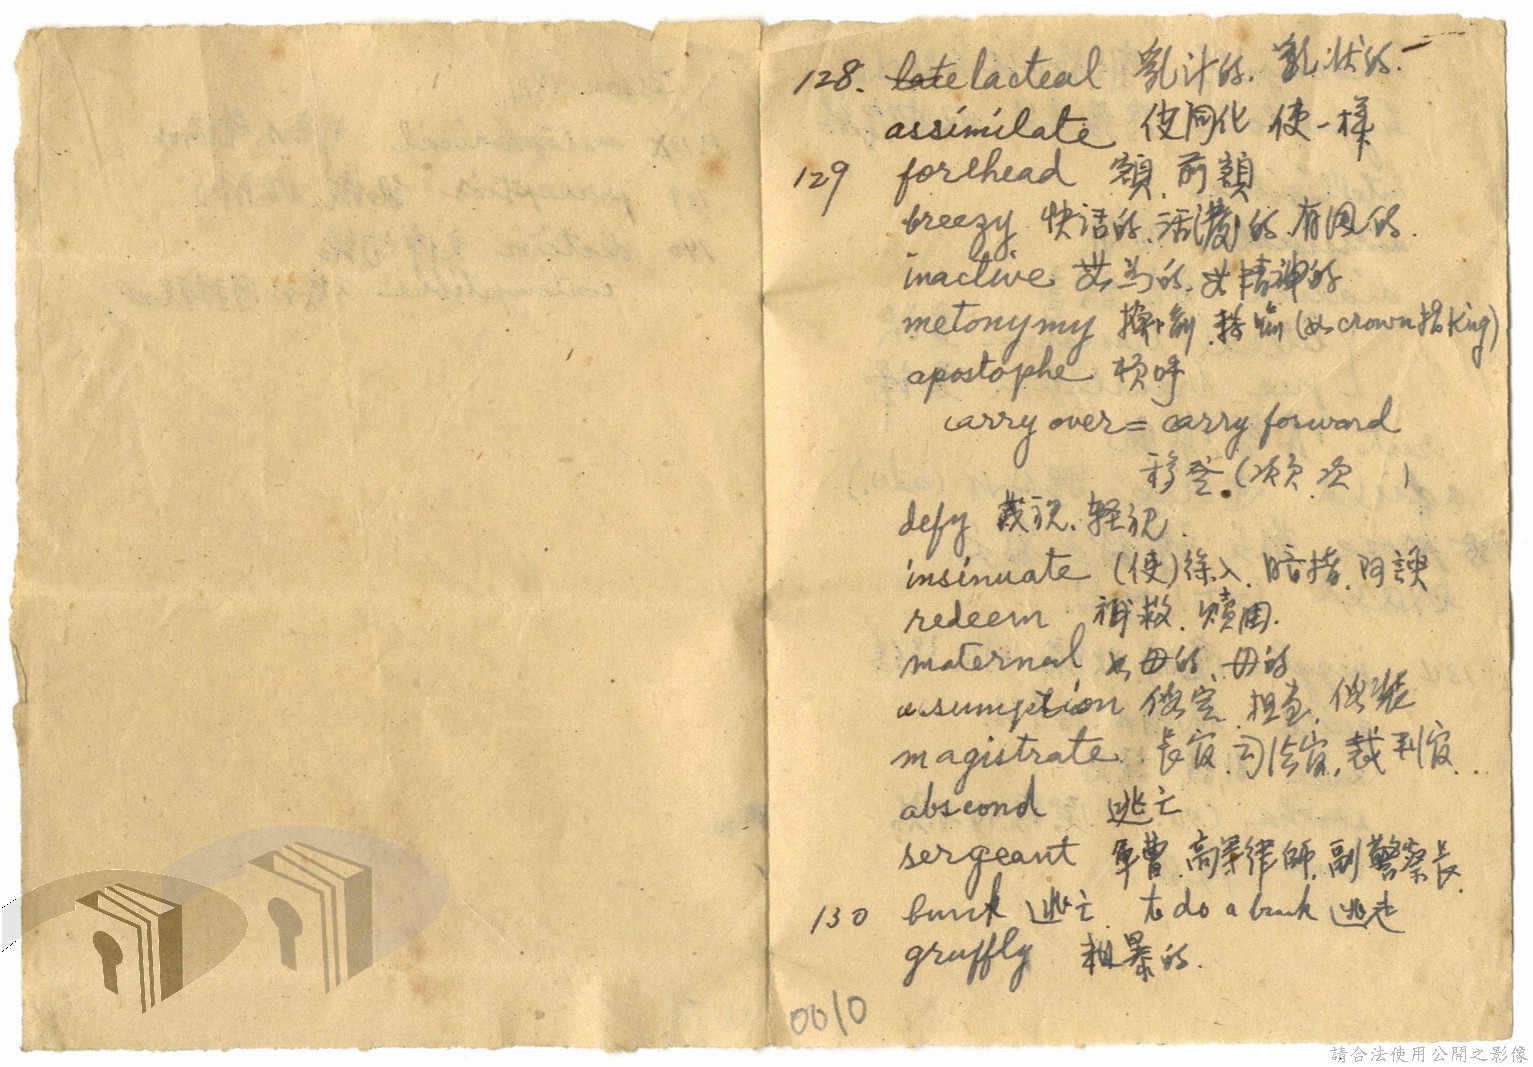 128. late lacteal 乳汁的. 乳状的.
assimilate 使同化 使一樣
129 forehead 額, 前額
breezy 快活的, 活潑的, 有風的.
inactive 的, 精神的
metonymy 換喻, 轉喻 (如 crown 指 King)
apostophe 頓呼
carry over = carry forward
移登 (次頁, 次 )
defy 蔑視, 轻視.
insinuate (使)徐入, 暗指, 阿諛
redeem 補救, 贖回.
maternal 如母的, 母的
assumption 假定, 担当, 假裝
magistrate. 長官, 司法官, 裁判官...
abscond 逃亡
sergeant 軍曹, 高等律師, 副警察長.
130 bunk 逃亡 to do a bunk 逃走
gruffly 粗暴的.
0010
請合法使用公開之影像